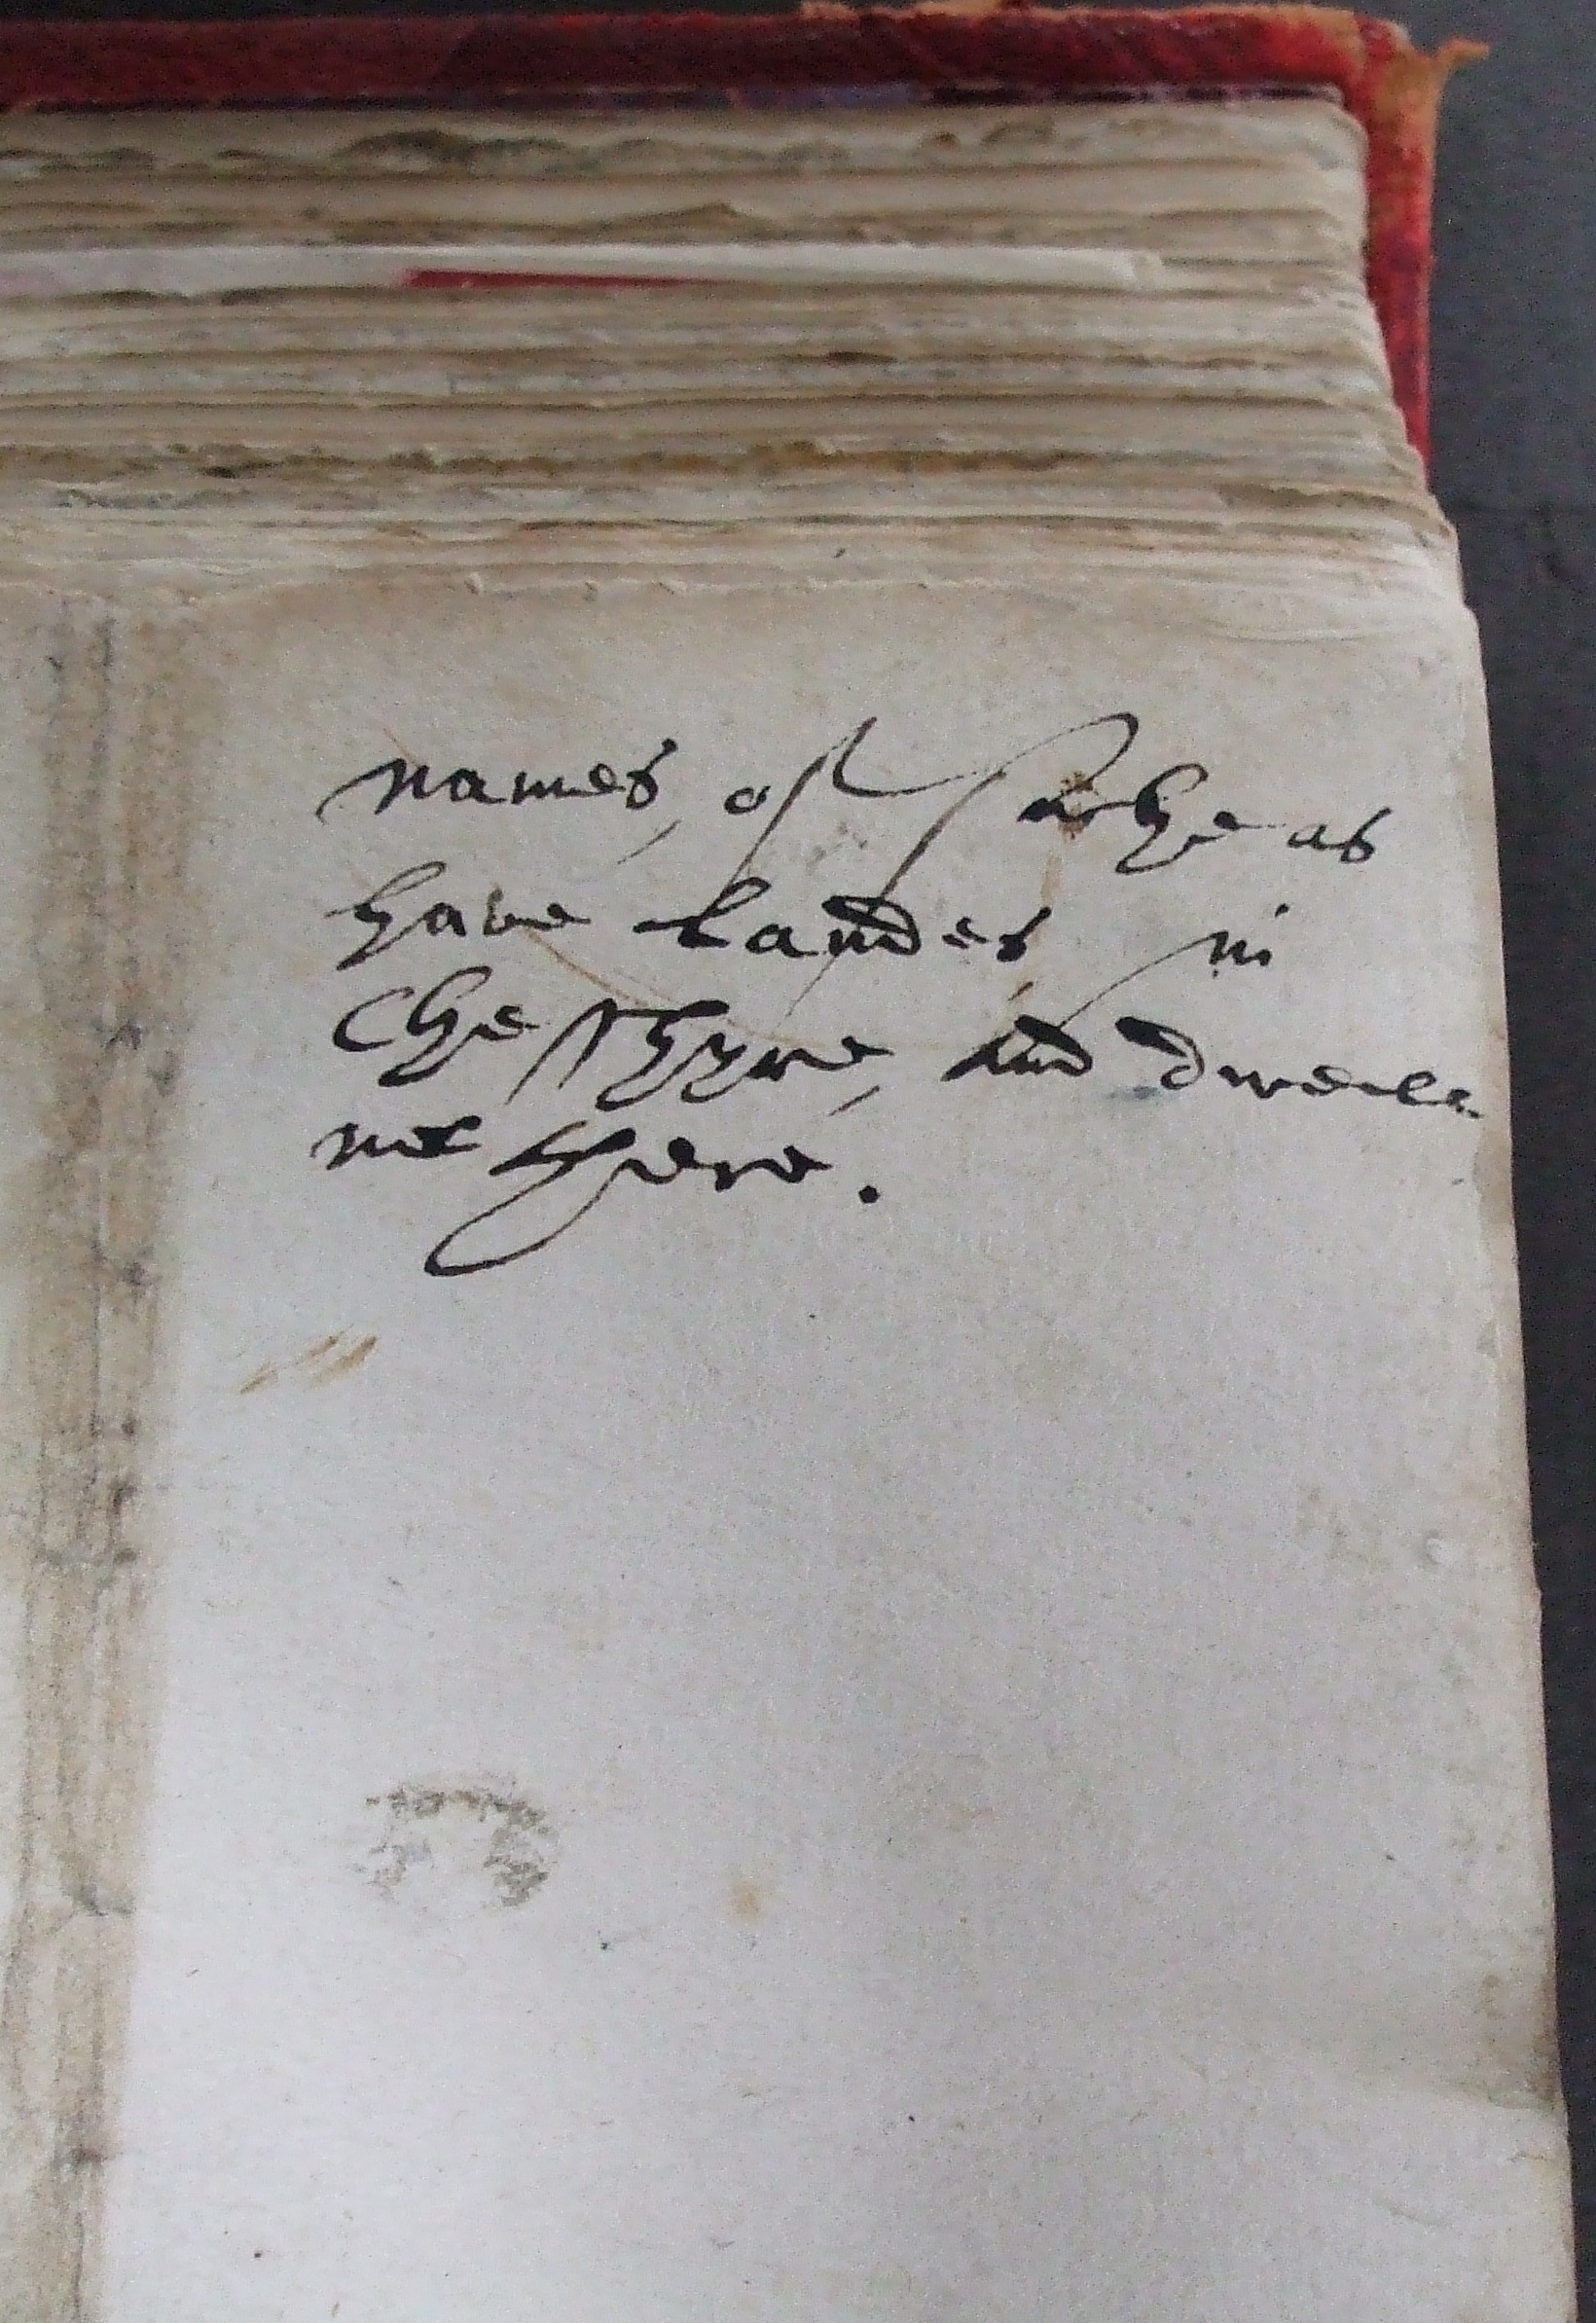 names, of suche as
have landes in
Chesshyre, and dwell
not here.